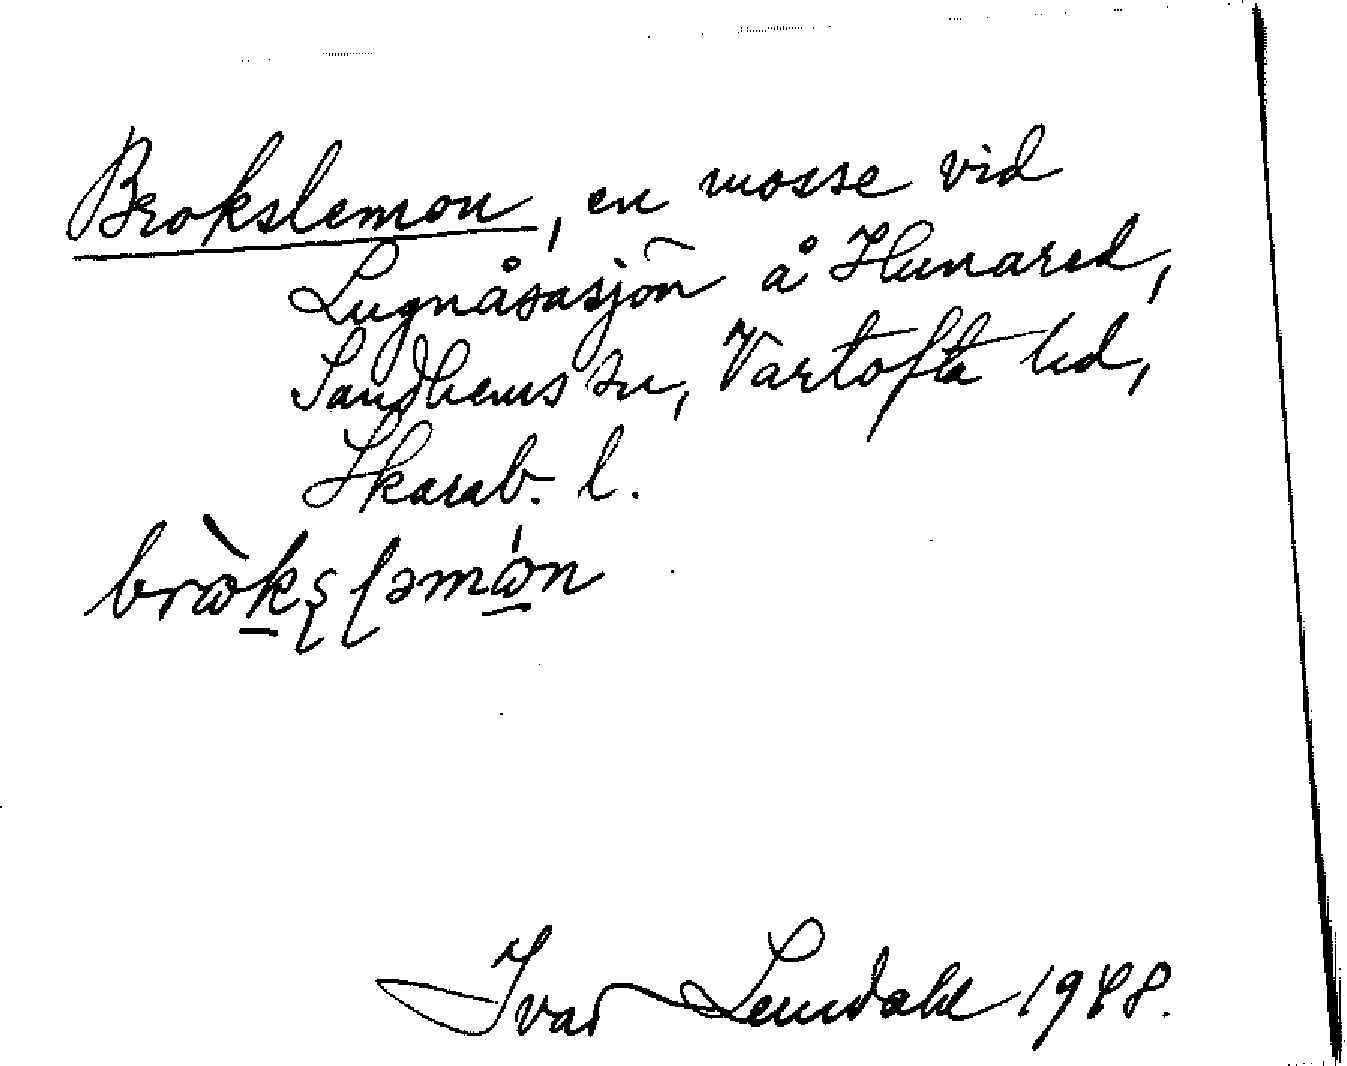 Brokslemon, en mosse vid
Lugnåsasjön å Hunared,
Sandhems sn, Vartofta hd,
Skarab. l.
Ivar Lundahl 1948.